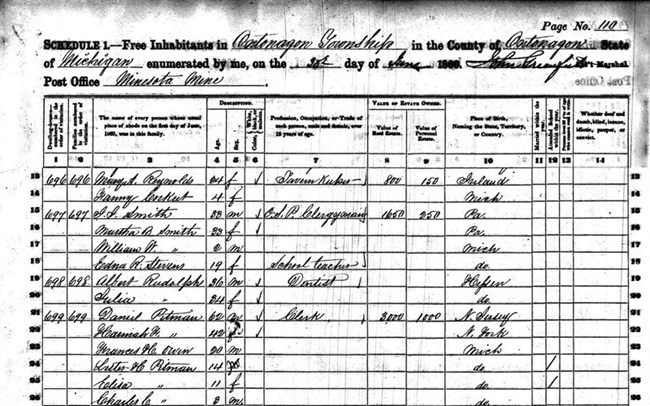 Page No. 110
SCHEDULE 1.—Free Inhabitants in Ontonagon Township in the County of Ontonagon State
of Michigan enumerated by me, on the day of June 1860. Ass't Marshal.
Post Office Minesota Mine
Dwelling-houses numbered in the order of visitation. Families numbered in the order of visitation. The name of every person whose usual place of abode on the first day of June, 1860, was in this family. DESCRIPTION. Age. Sex. Color. Profession, Occupation, or Trade of each person, male and female, over 15 years of age. VALUE OF ESTATE OWNED. Value of Real Estate. Value of Personal Estate. Place of Birth, Naming the State, Territory, or Country. Married within the year. Attended School within the year. Whether deaf and dumb, blind, insane, idiotic, pauper, or convict.
1 2 3 4 5 6 7 8 9 10 11 12 13 14
13 696 696 Mary A. Reynolds 24 f Tavern 800 150 Irland 13
Fanny 4 f Mich
15 697 697 Smith 33 m O.S.P. Clergyman 1650 250 Pa. 15
16 Martha B Smith 33 f Pa. 16
17 William W. " 2 m Mich 17
Edna R. Stevens 19 f School teacher do.
19 698 698 Albert Rudolph 36 m Dentist 19
20 Julia " 24 f do. 20
21 699 699 Daniel Pitman 62 m Clerk 3000 1000 N Jersey 21
22 Hannah " 42 f N. York 22
23 Frances H. Owen 20 m Mich 23
24 H Pitman 14 do. 1 24
25 Eliza " 11 f do. 1 25
26 Charles C " 3 m. do. 26